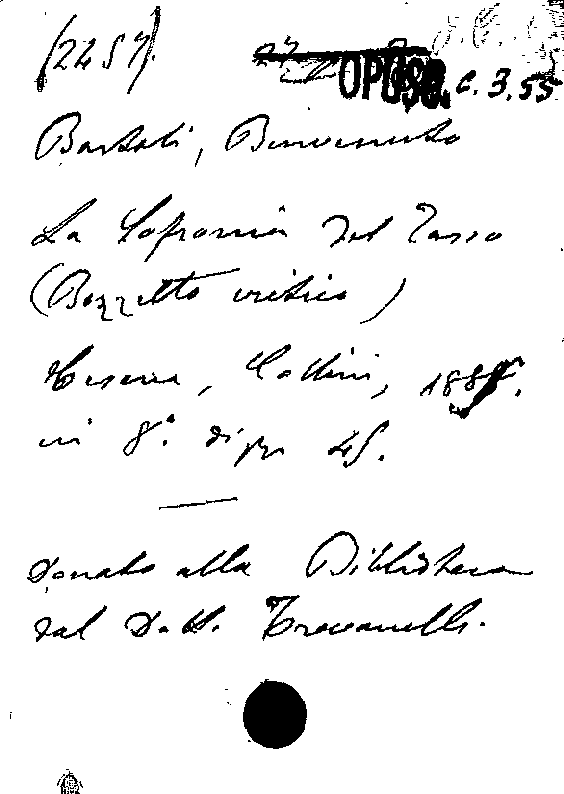 (2457).
OPUSC. C. 3.55
Bartoli, Benvenuto
La Sofronia del Tasso
(Bozzetto critico)
Cesena, Collini, 188
in 8°. di pp. 45.
Donato alla Biblioteca
dal Dott. Trovanelli.